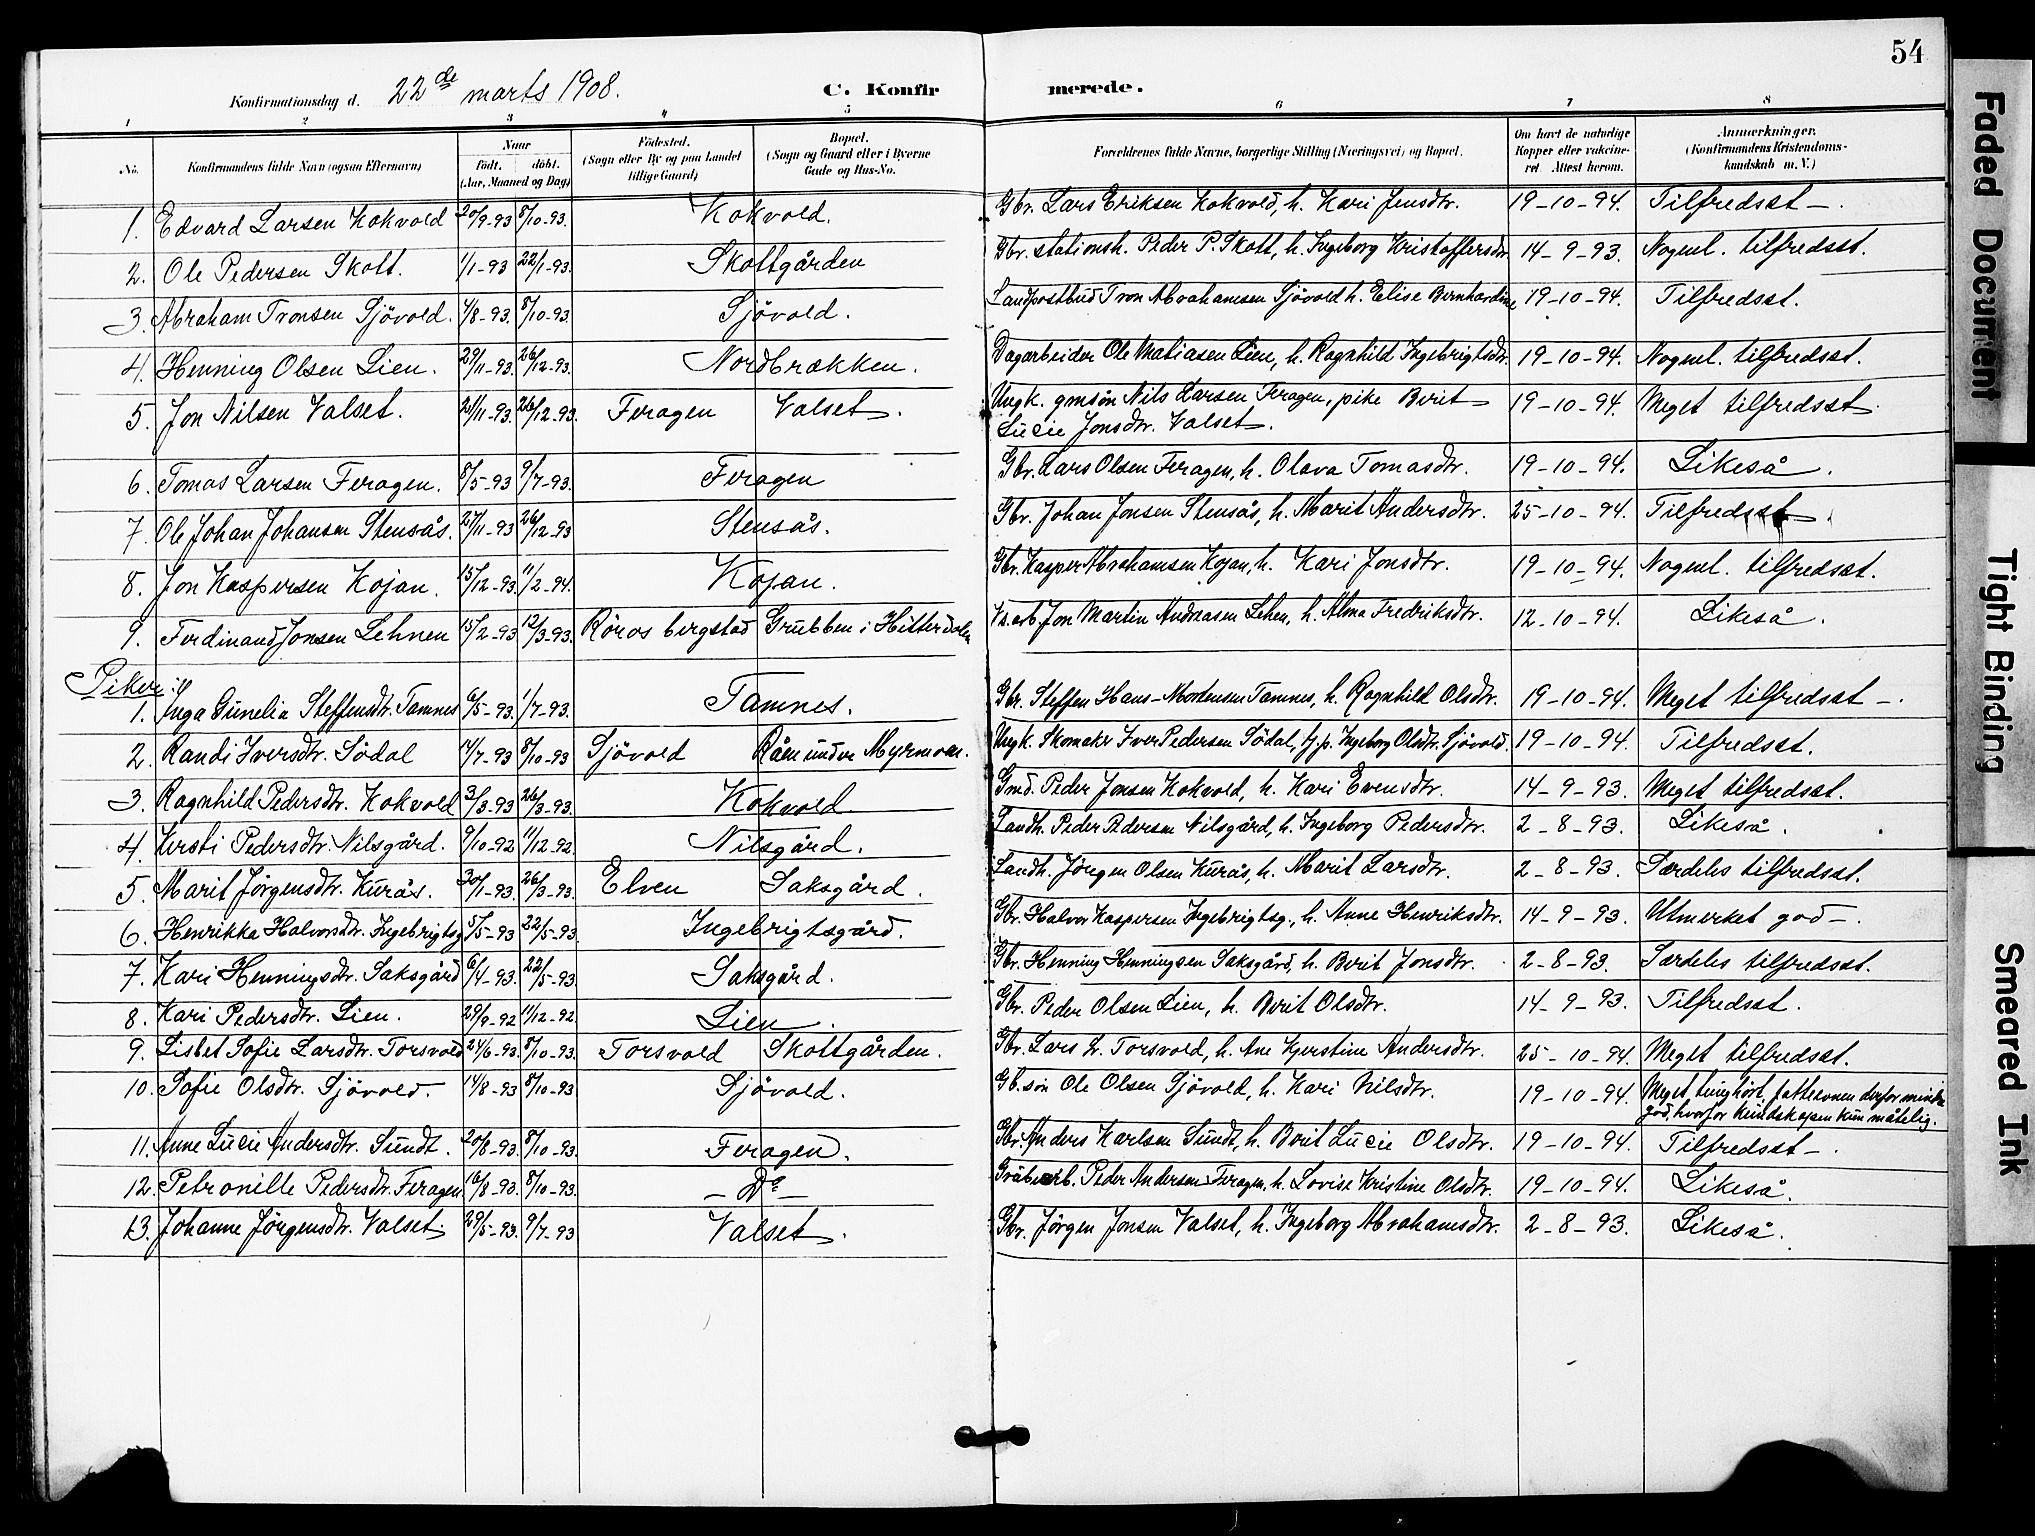 54
Konfirmationsdag d. 22de marts 1908. C. Konfirmerede.
1 2 3 4 5 6 7 8
No. Konfirmandens fulde Navn (ogsaa Efternavn) Naar født. døbt. (Aar, Maaned og Dag) Fødested. (Sogn eller By og paa Landet tillige Gaard) Bopæl. (Sogn og Gaard eller i Byerne Gade og Hus-No. Forældrenes fulde Navne, borgerlige Stilling (Næringsvei) og Bopæl. Om havt de naturlige Kopper eller vaccineret Attest herom. Anmærkninger. (Konfirmandens Kristendomskundskab m. V.)
1. Edvard Larsen Kokvold 20/9-93 8/10-93. Kokvold. Gbr. Lars Eriksen Kokvold, h. Kari Jensdtr. 19-10-94. Tilfredsst-.
2. Ole Pedersen Skott. 1/1-93 22/1-93. Skottgården Gbr. stationsh. Peder P. Skott, h. Ingeborg Kristoffersdtr 14-9-93. Nogenl. tilfredsst.
3. Abraham Tronsen Sjövold. 4/8-93. 8/10-93. Sjövold. Landpostbud Tron Abrahamsen Sjövold h. Elise Bernhardine 19-10-94. Tilfredsst.
4. Henning Olsen Lien. 29/11-93. 26/12-93. Nordbrækken. Dagarbeider Ole Matiasen Lien, h. Ragnhild Ingebrigtsdtr. 19-10-94. Nogenl. tilfredsst.
5. Jon Nilsen Valset. 21/11-93. 26/12-93. Feragen Valset. Ungk. gmsön Nils Larsen Feragen, pike Berit 19-10-94. Meget tilfredsst.
Lucie Jonsdtr. Valset.
6. Tomas Larsen Feragen. 8/5-93 9/7-93. Feragen Gbr. Lars Olsen Feragen, h. Olava Tomasdtr. 19-10-94. Likeså.
7. Ole Johan Johansen Stensås. 27/11-93 26/12-93 Stensås. Gbr. Johan Jonsen Stensås, h. Marit Andersdtr. 25-10-94. Tilfredsst.
8. Jon Kaspersen Kojan. 15/12-93. 11/2-94. Kojan. Gbr. Kasper Abrahamsen Kojan, h. Kari Jonsdtr. 19-10-94. Nogenl. tilfredsst.
9. Ferdinand Jonsen Lehnen 15/2-93 12/3-93. Röros bergstad Grubben i Hitterdalen Jon Martin Andreasen Lehen, h. Alma Fredriksdtr. 12-10-94. Likeså.
Piker:
1. Inga Gunelia Steffensdtr. Tamnes 6/5-93. 1/7-93. Tamnes. Gbr. Steffen Hans-Mortensen Tamnes, h. Ragnhild Olsdtr. 19-10-94. Meget tilfredsst-.
2. Randi Iversdtr. Södal 14/7-93 8/10-93 Sjövold Råen under Myrmoen. Ungk. Skomaker Iver Pedersen Södal, tj.p. Ingeborg Olsdtr. Sjövold. 19-10-94. Tilfredsst.
3. Ragnhild Pedersdtr. Kokvold 3/3-93 26/3-93. Kokvold Gmd. Peder Jonsen Kokvold, h. Kari Evensdtr. 14-9-93. Meget tilfredsst.
4. Kersti Pedersdtr. Nilsgård. 9/10-92 11/12-92. Nilsgård. Landh. Peder Pedersen Nilsgård, h. Ingeborg Pedersdtr. 2-8-93. Likeså.
5. Marit Jörgensdtr. Kurås. 30/1-93. 26/3-93. Elven Saksgård. Landh. Jörgen Olsen Kurås, h. Marit Larsdtr. 2-8-93. Særdeles tilfredsst.
6. Henrikka Halvorsdtr. Ingebrigtsg. 5/5-93 22/5-93. Ingebrigtsgård. Gbr. Halvor Kaspersen Ingebrigtsg., h. Anne Henriksdtr. 14-9-93. Utmerket god-.
7. Kari Henningsdtr. Saksgård 6/4-93. 22/5-93. Saksgård. Gbr. Henning Henningsen Saksgård, h. Berit Jonsdtr. 2-8-93. Særdeles tilfredsst.
8. Kari Pedersdtr. Lien. 29/9-92 11/12-92 Lien. Gbr. Peder Olsen Lien, h. Berit Olsdtr. 14-9-93. Tilfredsst.
9. Lisbet Sofie Larsdtr. Torsvold 24/6-93. 8/10-93. Torsvold Skottgården. Gbr. Lars L. Torsvold, h. Ane Kjerstine Andersdtr. 25-10-94. Meget tilfredsst.
10. Sofie Olsdtr. Sjövold. 14/8-93 8/10-93. Sjövold. Gb.sön Ole Olsen Sjövold, h. Kari Nilsdtr. 19-10-94. Meget tunghört, fatteevnen derfor mindre
god, hvorfor kundskapen kun måtelig.
11. Anne Lucie Andersdtr. Sundt. 20/8-93. 8/10-93. Feragen. Gbr. Anders Karlsen Sundt, h. Berit Lucie Olsdtr. 19-10-94. Tilfredsst-.
12. Petronille Pedersdtr. Feragen 16/8-93. 8/10-93. -Do- Grubearb. Peder Andersen Feragen, h. Lovise Kristine Olsdtr. 19-10-94. Likeså.
13. Johanne Jörgensdtr. Valset. 29/5-93. 9/7-93 Valset. Gbr. Jörgen Jonsen Valset, h. Ingeborg Abrahamsdtr. 2-8-93. Likeså.
Faded Document
Tight Binding
Smeared Ink